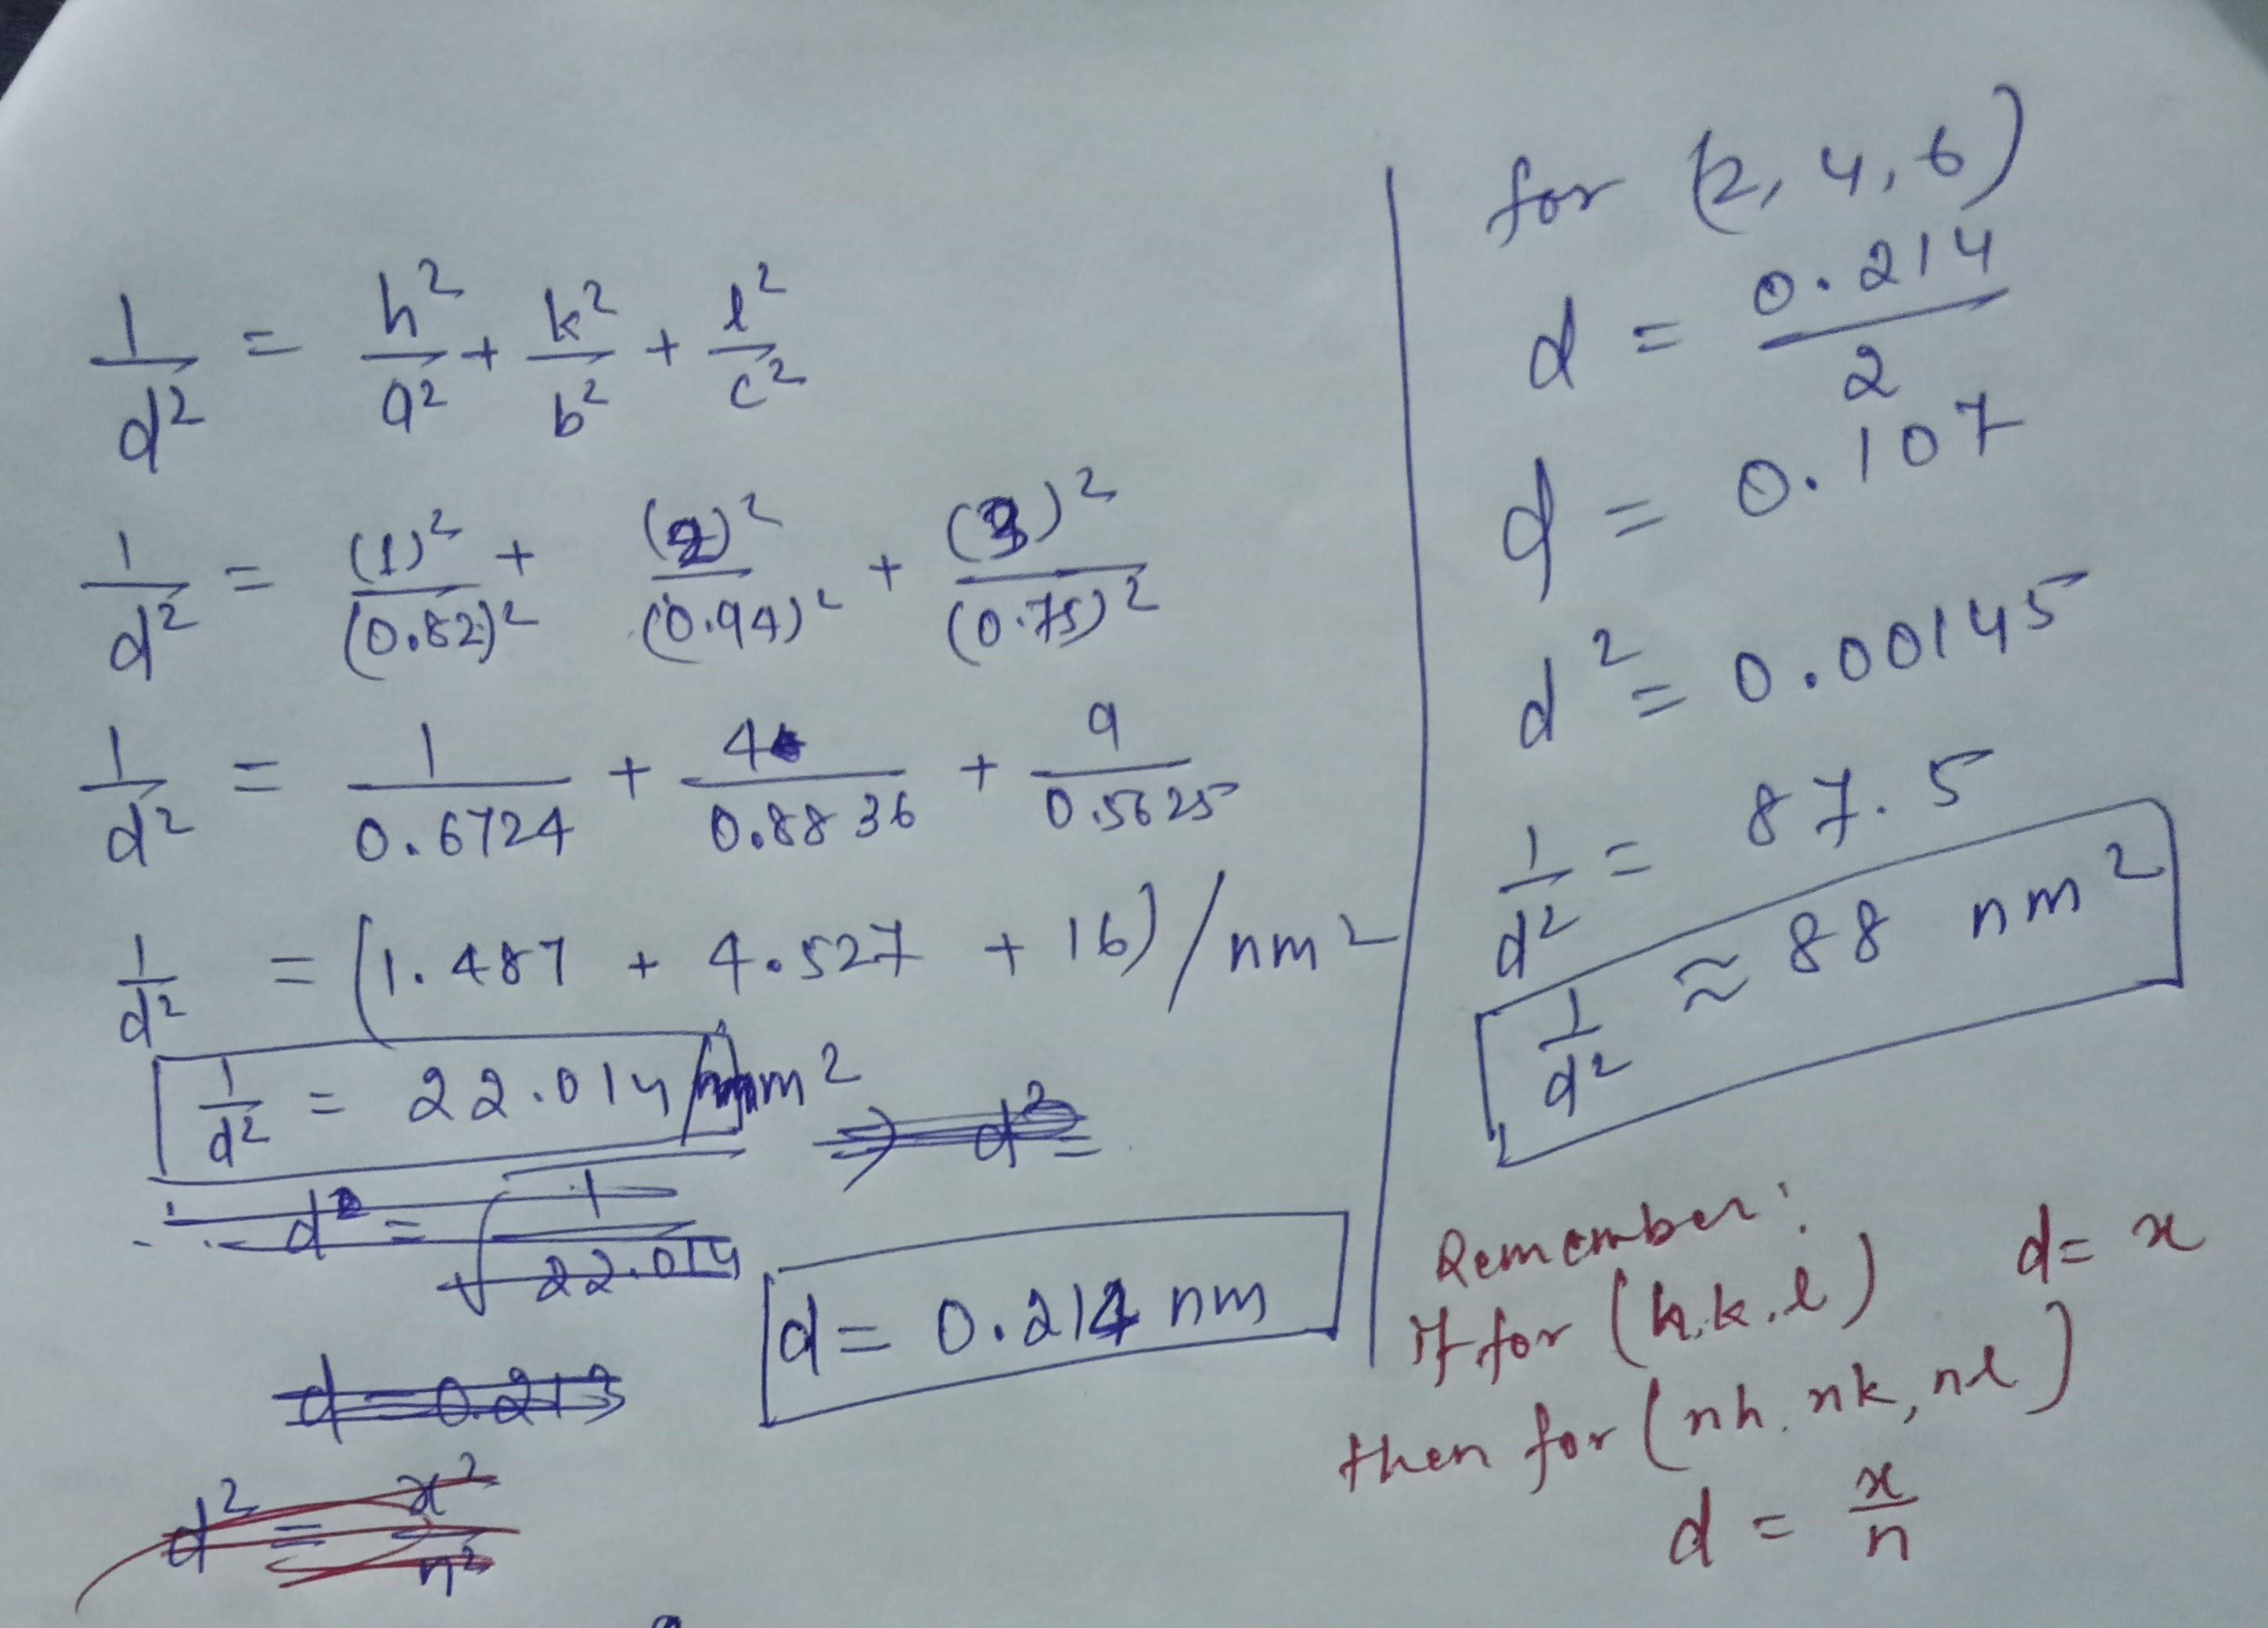 1/d² = h²/a² + k²/b² + l²/c²
1/d² = (1)²/(0.82)² + (2)²/(0.94)² + (3)²/(0.75)²
1/d² = 1/0.6724 + 4/0.8836 + 9/0.5625
1/d² = (1.487 + 4.527 + 16)/nm²
1/d² = 22.014/nm² ⇒ d² =
∴ d = √(1/22.014)
d = 0.213
d = 0.214 nm
d² = x²/n²
for (2, 4, 6)
d = 0.214/2
d = 0.107
d² = 0.00145
1/d² = 87.5
1/d² ≈ 88 nm²
Remember:
if for (h,k,l) d = x
then for (nh, nk, nl)
d = x/n